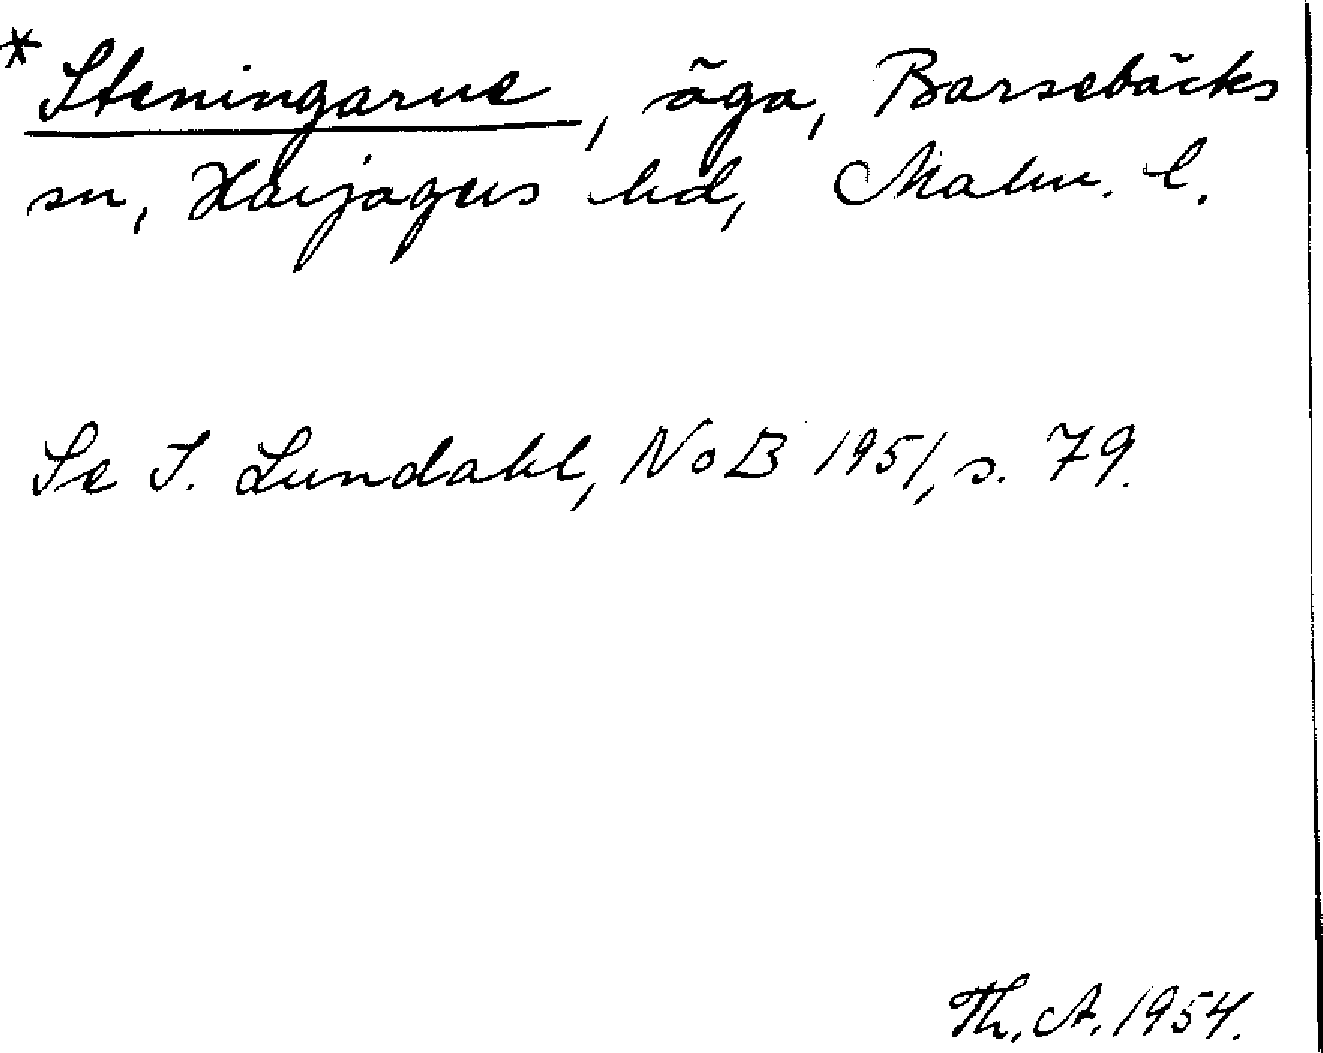 * Steningarne, äga, Barsebäcks
sn, Harjagers hd, Malm. l.
Se I. Lundahl, NoB 1951, s. 79.
Th. A. 1954.